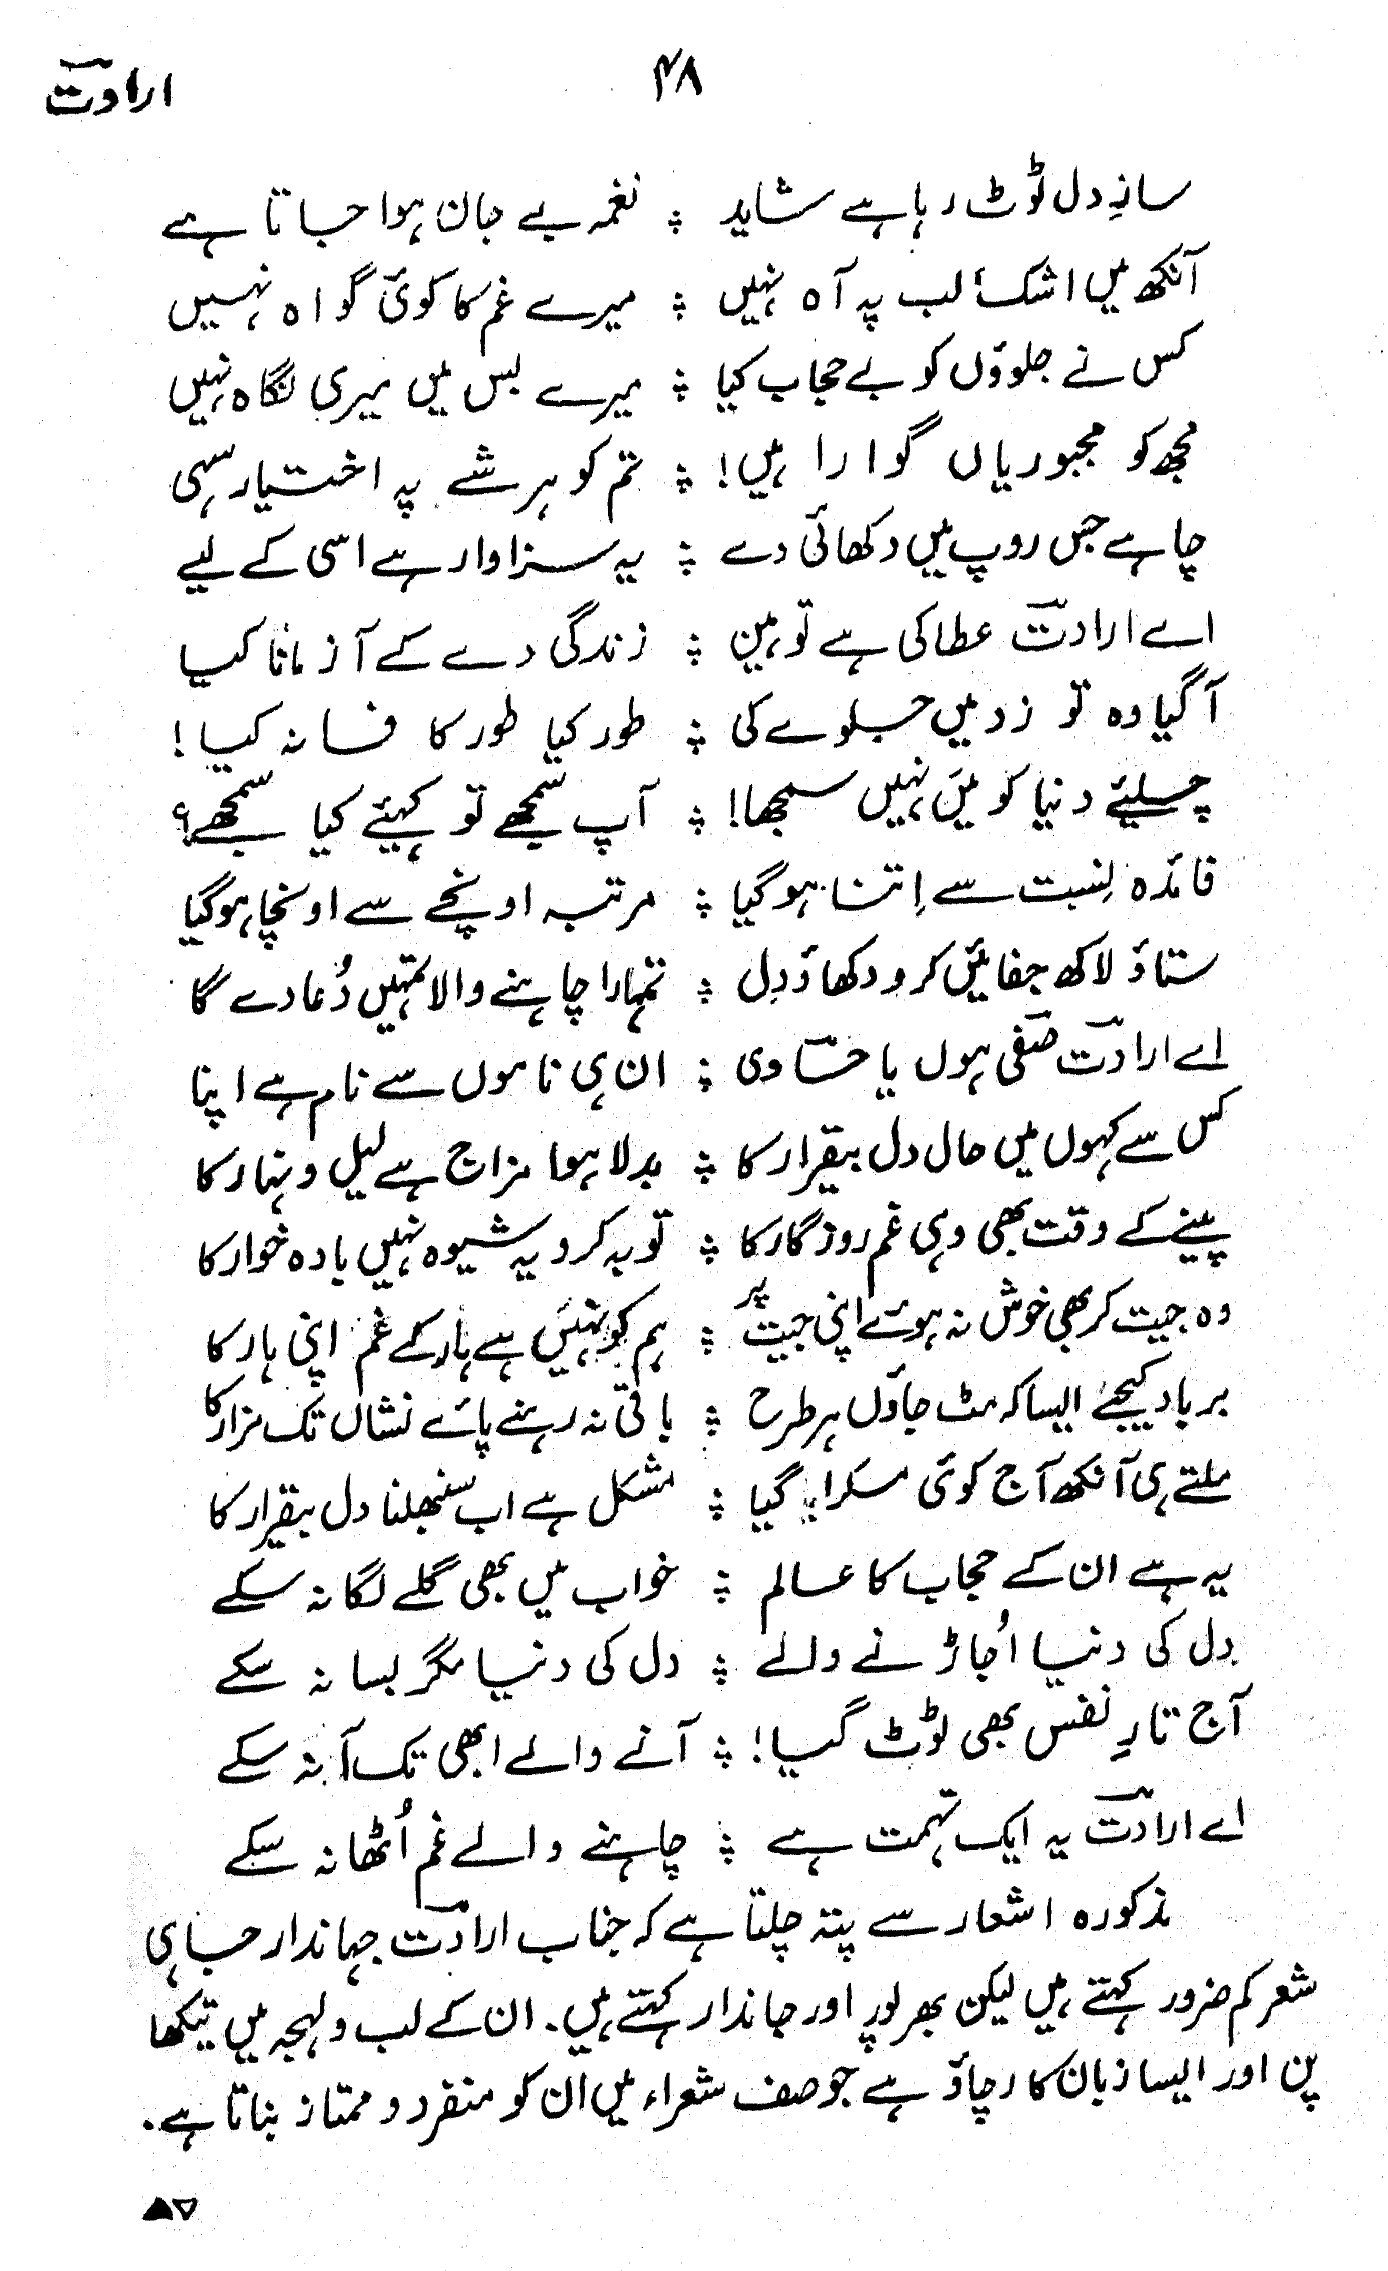 ارادتؔ
۴۸
سازِ دل ٹوٹ رہا ہے شاید ؞ نغمہ بے جان ہوا جاتا ہے
آنکھ میں اشک لب پہ آہ نہیں ؞ میرے غم کا کوئی گواہ نہیں
کس نے جلووں کو بے حجاب کیا ؞ میرے بس میں میری نگاہ نہیں
مجھ کو مجبوریاں گوارا ہیں! ؞ تم کو ہر شے پہ اختیار سہی
چاہے جس روپ میں دکھائی دے ؞ یہ سزاوار ہے اسی کے لیے
اے ارادتؔ عطا کی ہے توہین ؞ زندگی دے کے آزمانا کیا
آگیا وہ تو زد میں جلوے کی ؞ طور کیا طور کا فسانہ کیا!
چلیئے دنیا کو میں نہیں سمجھا! ؞ آپ سمجھے تو کہیئے کیا سمجھے؟
فائدہ نِسبت سے اِتنا ہوگیا ؞ مرتبہ اونچے سے اونچا ہوگیا
ستاؤ لاکھ جفائیں کرو دکھاؤ دِل ؞ تمہارا چاہنے والا تمہیں دُعا دے گا
اے ارادتؔ صفیؔ ہوں یا حاویؔ ؞ ان ہی ناموں سے نام ہے اپنا
کس سے کہوں میں حال دل بیقرار کا ؞ بدلا ہوا مزاج ہے لیل و نہار کا
پینے کے وقت بھی وہی غم روزگار کا ؞ توبہ کرو یہ شیوہ نہیں بادہ خوار کا
وہ جیت کر بھی خوش نہ ہوئے اپنی جیت پر ؞ ہم کو نہیں ہے ہار کے غم اپنی ہار کا
برباد کیجئے ایسا کہ مٹ جاؤں ہر طرح ؞ باقی نہ رہنے پائے نشاں تک مزار کا
ملتے ہی آنکھ آج کوئی مسکرا گیا ؞ مشکل ہے اب سنبھلنا دل بیقرار کا
یہ ہے ان کے حجاب کا عالم ؞ خواب میں بھی گلے لگا نہ سکے
دِل کی دنیا اُجاڑنے والے ؞ دل کی دنیا مگر بسا نہ سکے
آج تارِ نفس بھی ٹوٹ گیا! ؞ آنے والے ابھی تک آ نہ سکے
اے ارادتؔ یہ ایک تہمت ہے ؞ چاہنے والے غم اُٹھا نہ سکے
مذکورہ اشعار سے پتہ چلتا ہے کہ جناب ارادتؔ جہاندار جاہی
شعر کم ضرور کہتے ہیں لیکن بھرپور اور جاندار کہتے ہیں۔ ان کے لب و لہجہ میں تیکھا
پن اور ایسا زبان کا رچاؤ ہے جو صف شعراء میں ان کو منفرد و ممتاز بناتا ہے۔